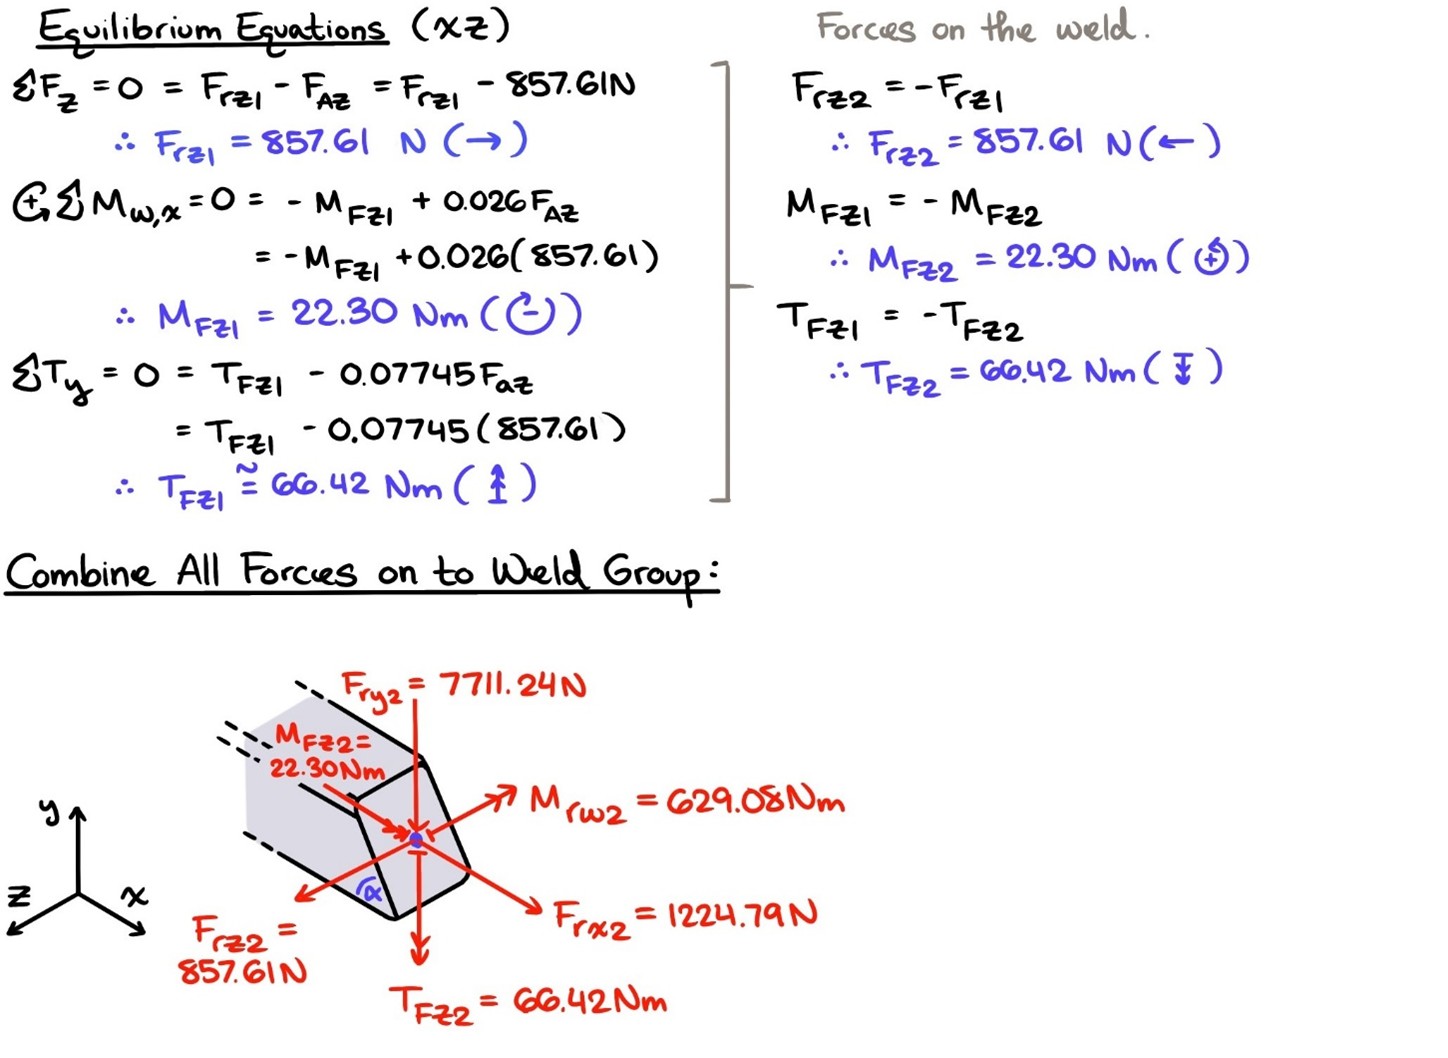 Equilibrium Equations (xz)
ΣF_z = 0 = F_rz1 - F_AZ = F_rz1 - 857.61N
∴ F_rz1 = 857.61 N (→)
↺+ ΣM_w,x = 0 = - M_FZ1 + 0.026F_AZ
= - M_FZ1 + 0.026(857.61)
∴ M_FZ1 = 22.30 Nm (↻-)
ΣT_y = 0 = T_FZ1 - 0.07745F_az
= T_FZ1 - 0.07745(857.61)
∴ T_FZ1 ≅ 66.42 Nm (↟)
Forces on the weld.
F_rz2 = -F_rz1
∴ F_rz2 = 857.61 N (←)
M_FZ1 = - M_FZ2
∴ M_FZ2 = 22.30 Nm (↺+)
T_FZ1 = -T_FZ2
∴ T_FZ2 = 66.42 Nm (↡)
Combine All Forces on to Weld Group:
F_ry2 = 7711.24N
M_FZ2 =
22.30Nm
M_rw2 = 629.08Nm
y
z
x
α
F_rx2 = 1224.79N
F_rz2 =
857.61N
T_FZ2 = 66.42Nm